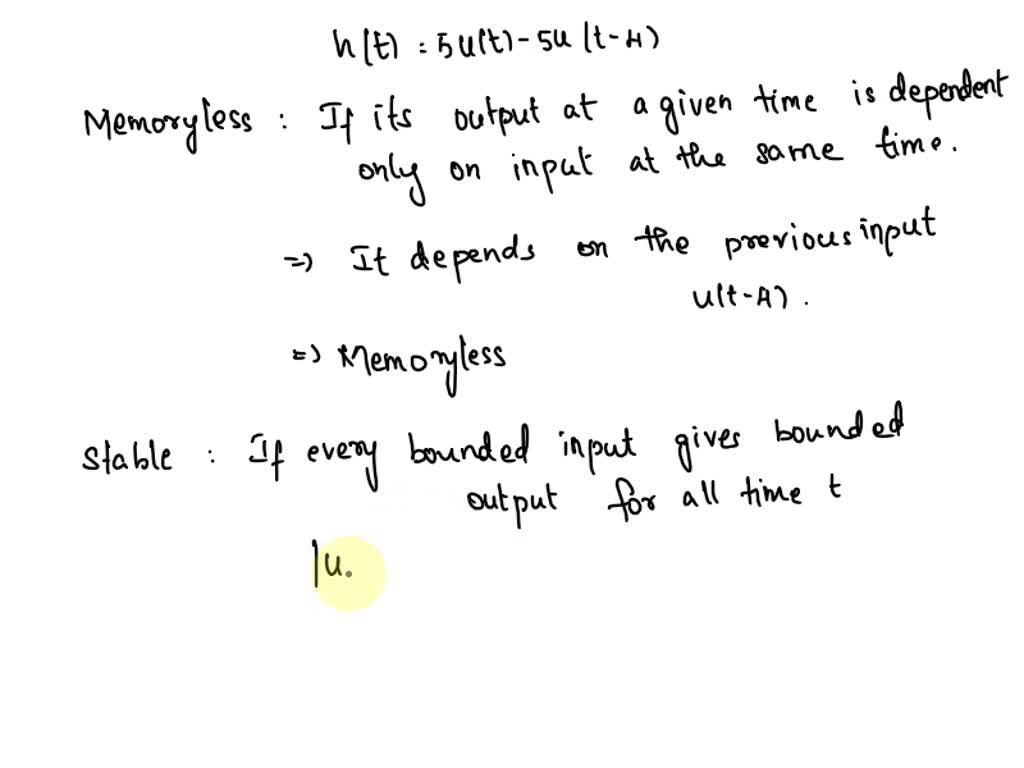 h(t) = 5u(t) - 5u(t-4)
Memoryless : If its output at a given time is dependent
only on input at the same time.
=) It depends on the previous input
u(t-4).
=) Memoryless
Stable : If every bounded input gives bounded
output for all time t
|u.